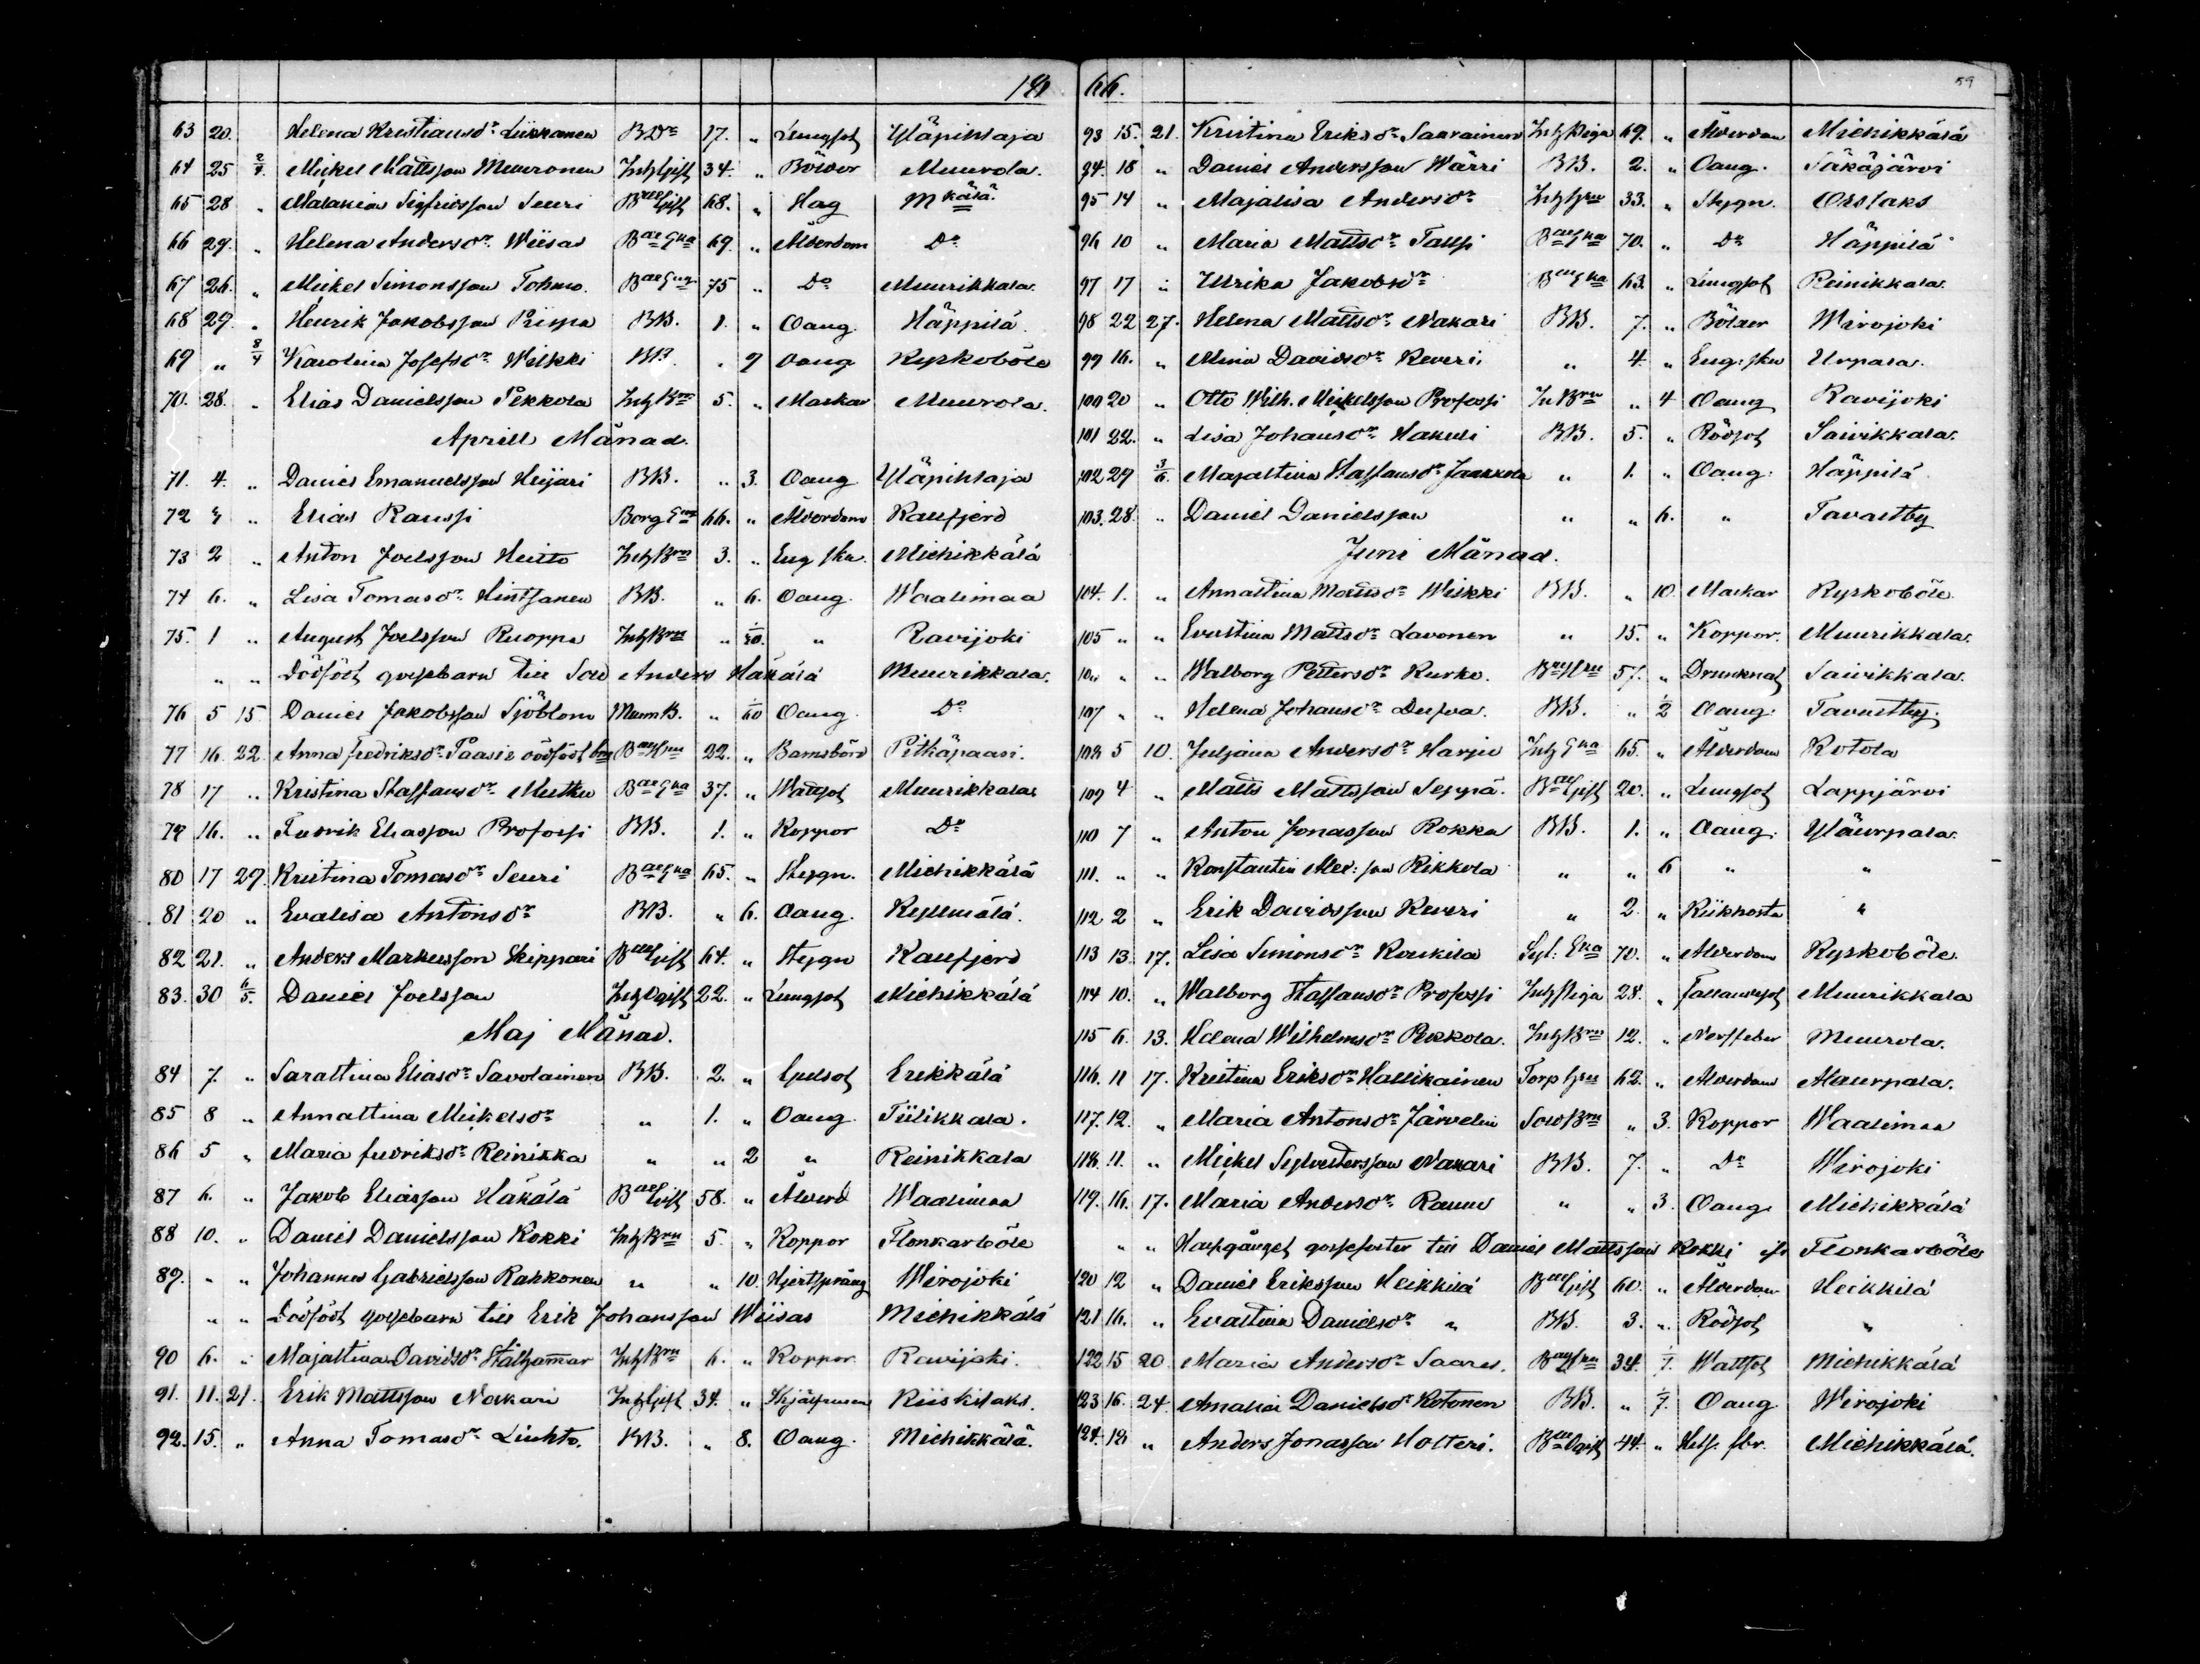 18 66.
59
63 20. Helena Kristiansdr Liikkanen BDr 17. " Lungsot Yläpihlaja
64 25 2/4 Mickel Mattsson Meuronen InhGift 34. " Bölder Muurola.
65 28 " Malakias Sigfridsson Seuri BaeGift 68. " Hag Mkälä.
66 29. " Helena Andersdr Wiisas BaeEka 69. " Ålderdom Do
67 26. " Mickel Simonsson Tohmo. BaeEnk 75 " Do Muurikkala.
68 29. " Henrik Jakobsson Prispa BB. 1. " Oang. Häppilä.
69 " 8/4 Karolina Josefsdr Wilkki BB. " 9 Oang Kyrkoböle
70. 28. " Elias Danielsson Pekkola InhBrn 5. " Maskar Muurola.
Aprill Månad.
71. 4. " Daniel Emanuelsson Heijari BB. " 3. Oang Yläpihlaja
72 " Elias Raussi Borg Enk 66. " Ålderdom Kaufjerd
73 2 " Anton Joelsson Heitto InhBrn 3. " Eng sku. Miehikkälä
74 6. " Lisa Tomasdr Hintsanen BB. " 6. Oang. Waalimaa
75. 1 " August Joelsson Ruoppa InhBrn " 1/30. " Ravijoki
" " Dödfödt gossebarn till Sold Anders Häkälä Muurikkala.
76 5 15 Daniel Jakobsson Sjöblom MurmB. " 1/60 Oang. Do
77 16. 22. Anna Fredriksdr Paasi e dödfödt brn BaeHru 22. " Barnsbörd Pitkäpaasi.
78 17 " Kristina Staffansdr Mutku BaeEka 37. " Wattsot Muurikkala
79 16. " Fredrik Eliasson Profossi BB. 1. " Koppor Do
80 17 29. Kristina Tomasdr Seuri BaeEka 65. " Stygn. Miehikkälä
81 20 " Evalisa Antonsdr BB. " 6. Oang. Kyllmälä.
82 21. " Anders Markusson Skippari BaeGift 64. " Stygn Kaufjerd
83. 30 6/5. Daniel Joelsson InhOgift 22. " Lungsot Miehikkälä
Maj Månad.
84 7. " Saraltina Eliasdr Savolainen BB. 2. " Gulsot Erikkälä
85 8 " Annaltina Mickelsdr " 1. " Oang. Tiilikkala.
86 5 " Maria Fredriksdr Reinikka " " 2 " Reinikkala
87 6. " Jakob Eliasson Häkälä BaeGift 58. " Ålderd Waalimaa
88 10. " Daniel Danielsson Kokki InhBrn 5. " Koppor Flonkarböle
89. " " Johannes Gabrielsson Rakkonen " " 10. Hjertsprång Wirojoki
" " Dödfödt gossebarn till Erik Johansson Wiisas Miehikkälä
90 6. " Majaltina Davidsdr Stålhammar InhBrn 6. " Koppor Ravijoki.
91. 11. 21. Erik Mattsson Nakari InhGift 34. " Kiiskilaks.
92. 15. " Anna Tomasdr Liuhto. BB. " 8. Oang. Miehikkälä.
93 15. 21. Kristina Eriksdr Saarainen InhPiga 69. " Ålderdom Miehikkälä
94. 18 " Daniel Andersson Wärri BB. 2. " Oang. Säkäjärvi
95 14 " Majalisa Andersdr InhHru 33. " Stygn. Orslaks
96 10 " Maria Mattsdr Tallsi BaeEka 70. " Do Häppilä
97 17 " Ulrika Jakobsdr BaeEka 63. " Lungsot Reinikkala.
98 22 27. Helena Mattsdr Nakari BB. 7. " Bölder Wirojoki
99 16. " Mina Davidsdr Keveri. " 4. " Eng: sku Urpala.
100 20 " Otto Wilh. Mickelsson Profossi InBrn " 4 Oang Ravijoki
101 22. " Lisa Johansdr Hakuli BB. 5. " Rödsot Saivikkala.
102 29 3/6. Majaltina Staffansdr Jaakkola " 1. " Oang. Häppilä
103. 28. " Daniel Danielsson " " 6. " Tavastby
Juni Månad.
104. 1. " Annaltina Mattsdr Wilkki BB. " 10. Maskar Kyrkoböle.
105 " " Evaltina Mattsdr Lavonen " 15. " Koppor. Muurikkala.
106 " " Walborg Pettersdr Kurko. BaeHru 57. " Drunknat Saivikkala.
107 " " Helena Johansdr Dufva. BB. " 1/2 Oang. Tavastby.
108 5 10. Juljana Andersdr Harju InhEka 65. " Ålderdom Kotola
109 4 " Matts Mattsson Seppä. BaeGift 20. " Lungsot Lappjärvi
110 7 " Anton Jonasson Rokka BB. 1. " Oang. Yläurpala.
111. " " Konstantin Alex: son Pikkola " " 6 " "
112 2 " Erik Davidsson Keveri " 2. " Kiikhosta "
113 13 17. Lisa Simonsdr Koukila Syt: Eka 70. " Ålderdom Kyrkoböle.
114 10. " Walborg Staffansdr Profossi InhPiga 28. " Fallandesot Muurikkala
115 6. 13. Helena Wilhelmsdr Pekkola. InhBrn 12. " Nerffeber Muurola.
116. 11 17. Kristina Eriksdr Hallikainen Torp Hru 62. " Ålderdom Alaurpala.
117. 12. " Maria Antonsdr Järvelin SoldBrn " 3. Koppor Waalimaa
118. 11. " Mickel Sylvestersson Nakari BB. 7. " Do Wirojoki
119. 16. 17. Maria Andersdr Raunu " " 3. Oang Miehikkälä
" " gossefoster till Daniel Mattsson Kokki ifr Flonkarböle
120 12 " Daniel Eriksson Heikkilä BaeGift 60. " Ålderdom Heikkilä
121 16. " Evaltina Danielsdr " BB. 3. " Rödsot "
122 15 20. Maria Andersdr Saares. BaeHru 34. 1/7. Wattsot Miehikkälä
123 16. 24. Amalia Danielsdr Kotonen BB. " 1/7. Oang Wirojoki
124. 18 " Anders Jonasson Holteri. BaeOgift 44. " Hets. fbr. Miehikkälä.